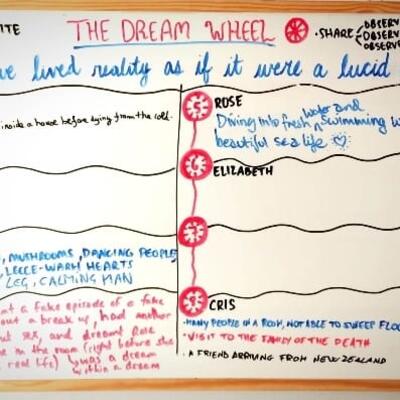 ITE
THE DREAM WHEEL
• SHARE
OBSERV
OBSERV
OBSERVE
ve lived reality as if it were a lucid
inside a house before dying from the cold.
ROSE
Diving into fresh water and swimming w
beautiful sea life
ELIZABETH
, MUSHROOMS, DANCING PEOPLE,
LECCE-WARM HEARTS
LEG, CALMING MAN
at a fake episode of a fake
out a break up, had another
ut sex, and dreamt Rose
me in the room (right before she
real life) was a dream
within a dream
CRIS
• MANY PEOPLE IN A ROOM, NOT ABLE TO SWEEP FLOO
• VISIT TO THE FAMILY OF THE DEATH
• A FRIEND ARRIVING FROM NEW ZEALAND